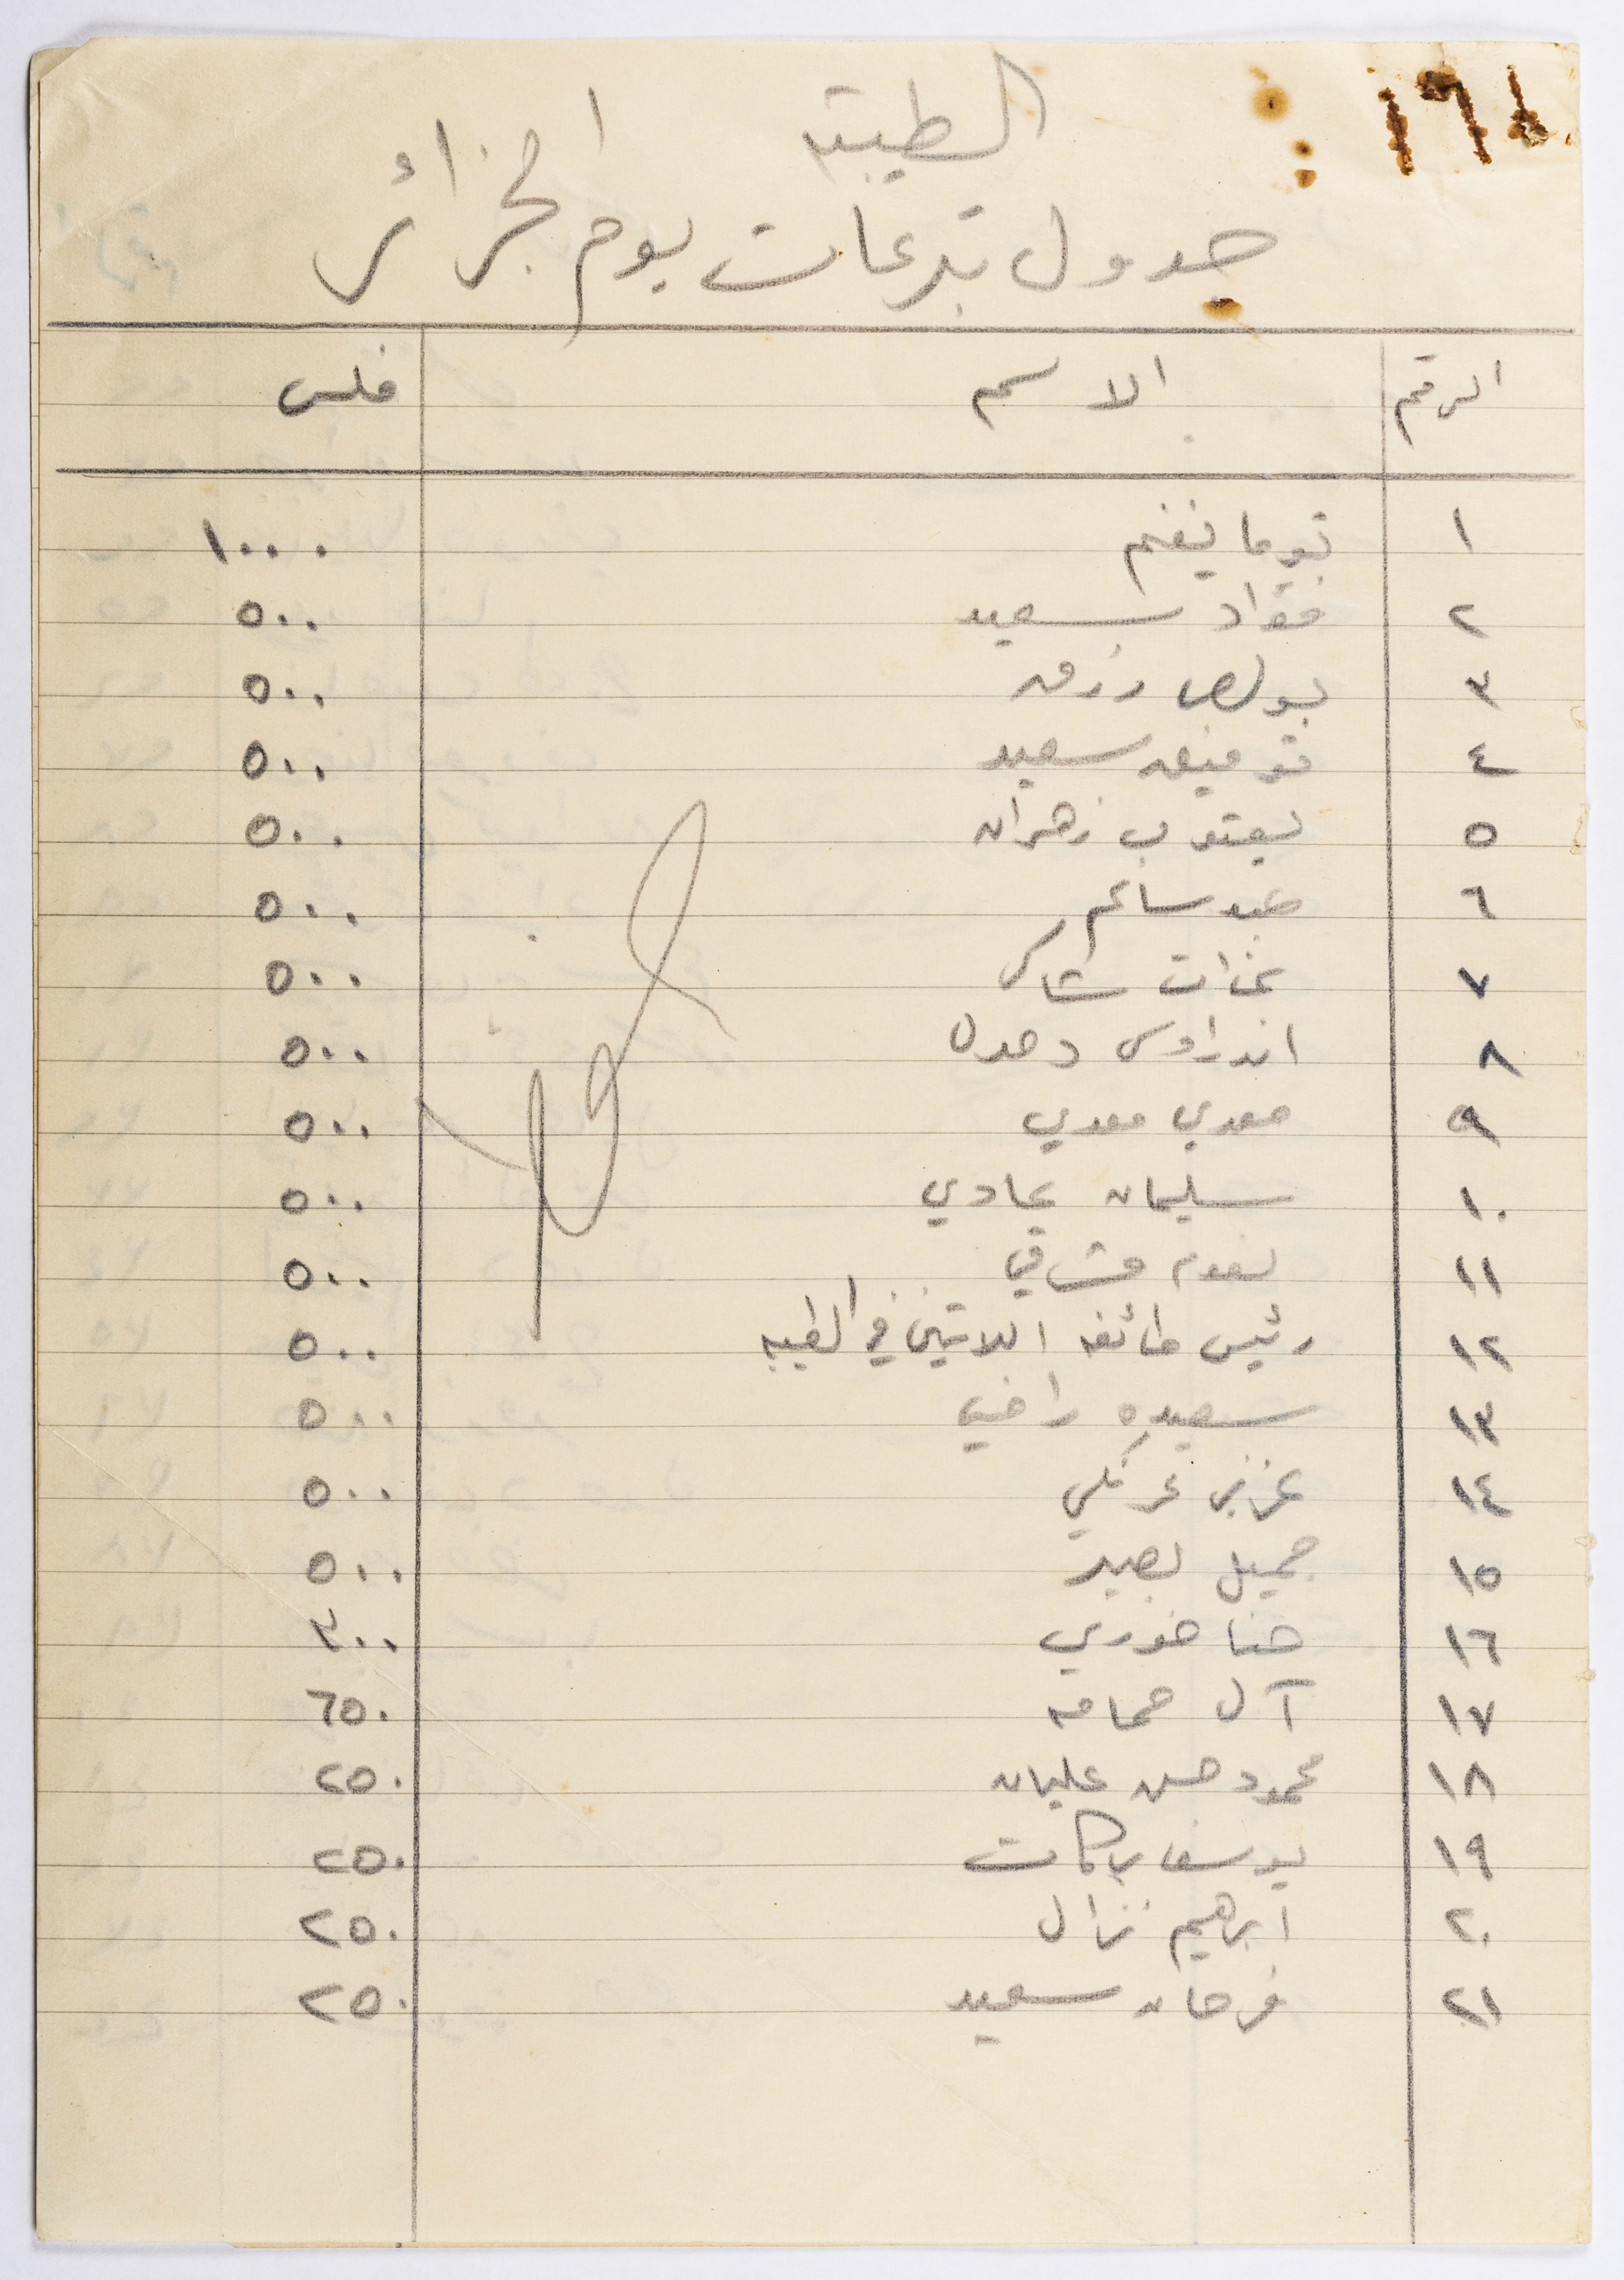 الطيبه
جدول تبرعات يوم الجزائر
الرقم الاسم فلس
١ توما نغنم ١٠٠٠
٢ فؤاد سعيد ٥٠٠
٣ بولص رزق ٥٠٠
٤ توفيق سعيد ٥٠٠
٥ يعقوب زهران ٥٠٠
٦ عيد سالم ٥٠٠
٧ شاكر ٥٠٠
٨ اندراوس دحدل ٥٠٠
٩ معدي معدي ٥٠٠
١٠ سليمان عبادي ٥٠٠
١١ نعوم مشرقي ٥٠٠
١٢ رئيس طائفه اللاتين في الطيبه ٥٠٠
١٣ سعيده راضي ٥٠٠
١٤ عزيز ٥٠٠
١٥ جميل بصير ٥٠٠
١٦ حنا خوري ٣٠٠
١٧ آل حمامه ٦٥٠
١٨ محمود حسن عليان ٢٥٠
١٩ يوسف بركات ٢٥٠
٢٠ ابرهيم نزال ٢٥٠
٢١ فرحان سعيد ٢٥٠